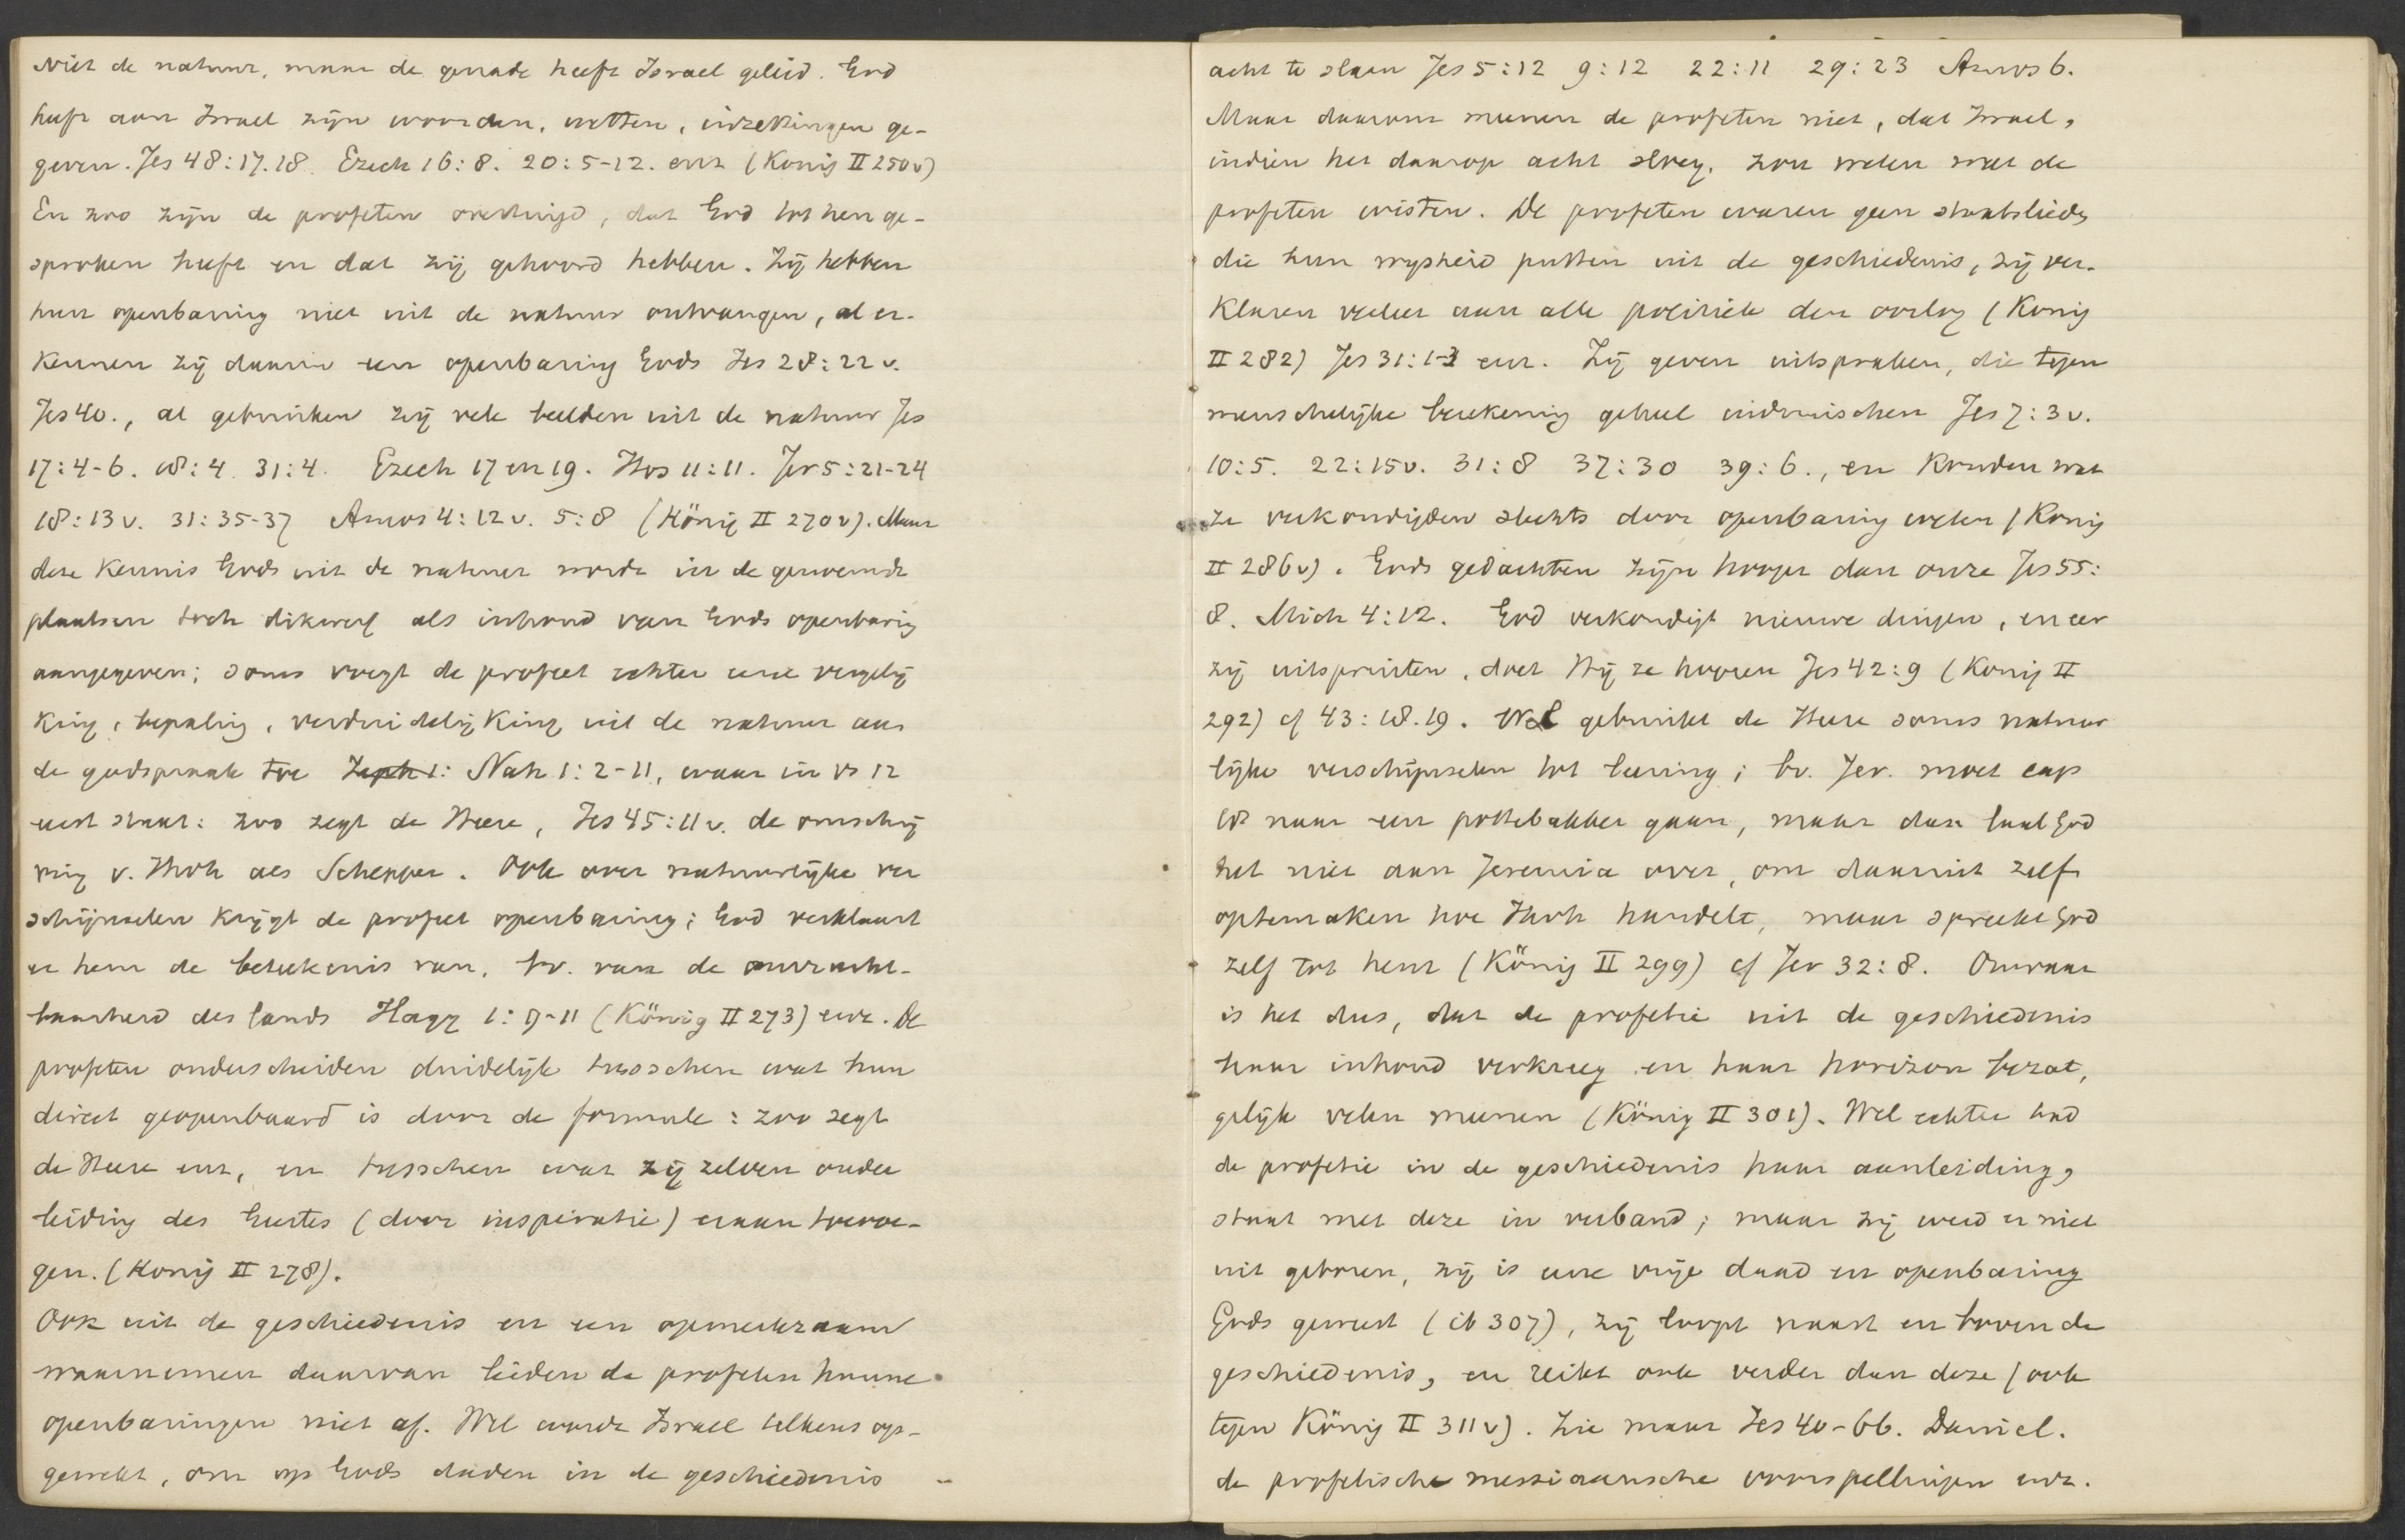 Niet de natuur, maar de genade heeft Israel geleid. God
heeft aan Israel zijn woorden, wetten, inzettingen ge-
geven. Jes 48:17.18. Ezech 16:8. 20:5-12. enz (Konig II 250v)
En zoo zijn de profeten overtuigd, dat God tot hen ge-
sproken heeft en dat zij gehoord hebben. Zij hebben
hun openbaring niet uit de natuur ontvangen, al er-
kennen zij daarin een openbaring Gods Jes 28:22 v.
Jes 40., al gebruiken zij vele beelden uit de natuur Jes
17:4-6. 18:4. 31:4. Ezech 17 en 19. Hos 11:11. Jer 5:21-24
18:13 v. 31:35-37 Amos 4:12 v. 5:8 (König II 270v). Maar
deze kennis Gods uit de natuur wordt in de genoemde
plaatsen toch dikwerf als inhoud van Gods openbaring
aangegeven; soms voegt de profeet echter eene vergelij
king, bepaling, verduidelijking uit de natuur aan
de godspraak toe Zeph 1: Nah 1:2-11, waar in vs 12
eerst staat: zoo zegt de Heere, Jes 45:11 v. de omschrij
ving v. Jhvh als Schepper. Ook over natuurlijke ver
schijnselen krijgt de profeet openbaring; God verklaart
er hem de beteekenis van, bv. van de onvrucht-
baarheid des lands Hagg 1:9-11 (König II 273) enz. De
profeten onderscheiden duidelijk tusschen wat hun
direct geopenbaard is door de formule: zoo zegt
de Heere enz, en tusschen wat zij zelven onder
leiding des Geestes (door inspiratie) eraan toevoe-
gen. (Konig II 278).
Ook uit de geschiedenis en een opmerkzaam
waarnemen daarvan leiden de profeten hunne
openbaringen niet af. Wel wordt Israel telkens op-
gewekt, om op Gods daden in de geschiedenis
acht te slaan Jes 5:12 9:12 22:11 29:23 Amos 6.
Maar daarom meenen de profeten niet, dat Israel,
indien het daarop acht sloeg, zou weten wat de
profeten wisten. De profeten waren geen staatslieden
die hun wysheid putten uit de geschiedenis, zij ver-
klaren veeleer aan alle politiek den oorlog (Konig
II 282) Jes 31:1-3 enz. Zij geven uitspraken, die tegen
menschelijke berekening geheel indruischen Jes 7:3 v.
10:5. 22:15v. 31:8 37:30 39:6., en konden wat
ze verkondigden slechts door openbaring weten (Konig
II 286v). Gods gedachten zijn hooger dan onze Jes 55:
8. Mich 4:12. God verkondigt nieuwe dingen, en eer
zij uitspruiten, doet Hij ze hooren Jes 42:9 (Konig II
292) cf 43:18.19. Wel gebruikt de Heere soms natuur
lijke verschijnselen tot leering; bv. Jer. moet cap
18 naar een pottebakker gaan, maar dan laat God
het niet aan Jeremia over, om daaruit zelf
optemaken hoe Jhvh handelt, maar spreekt God
zelf tot hem (König II 299) cf Jer 32:8. Onwaar
is het dus, dat de profetie uit de geschiedenis
haar inhoud verkreeg en haar horizon bezat,
gelijk velen meenen (König II 301). Wel echter had
de profetie in de geschiedenis haar aanleiding,
staat met deze in verband; maar zij werd er niet
uit geboren, zij is eene vrije daad en openbaring
Gods geweest (ib 307), zij loopt naast en boven de
geschiedenis, en reikt ook verder dan deze (ook
tegen König II 311v). Zie maar Jes 40-66. Daniel.
de profetische messiaansche voorspellingen enz.